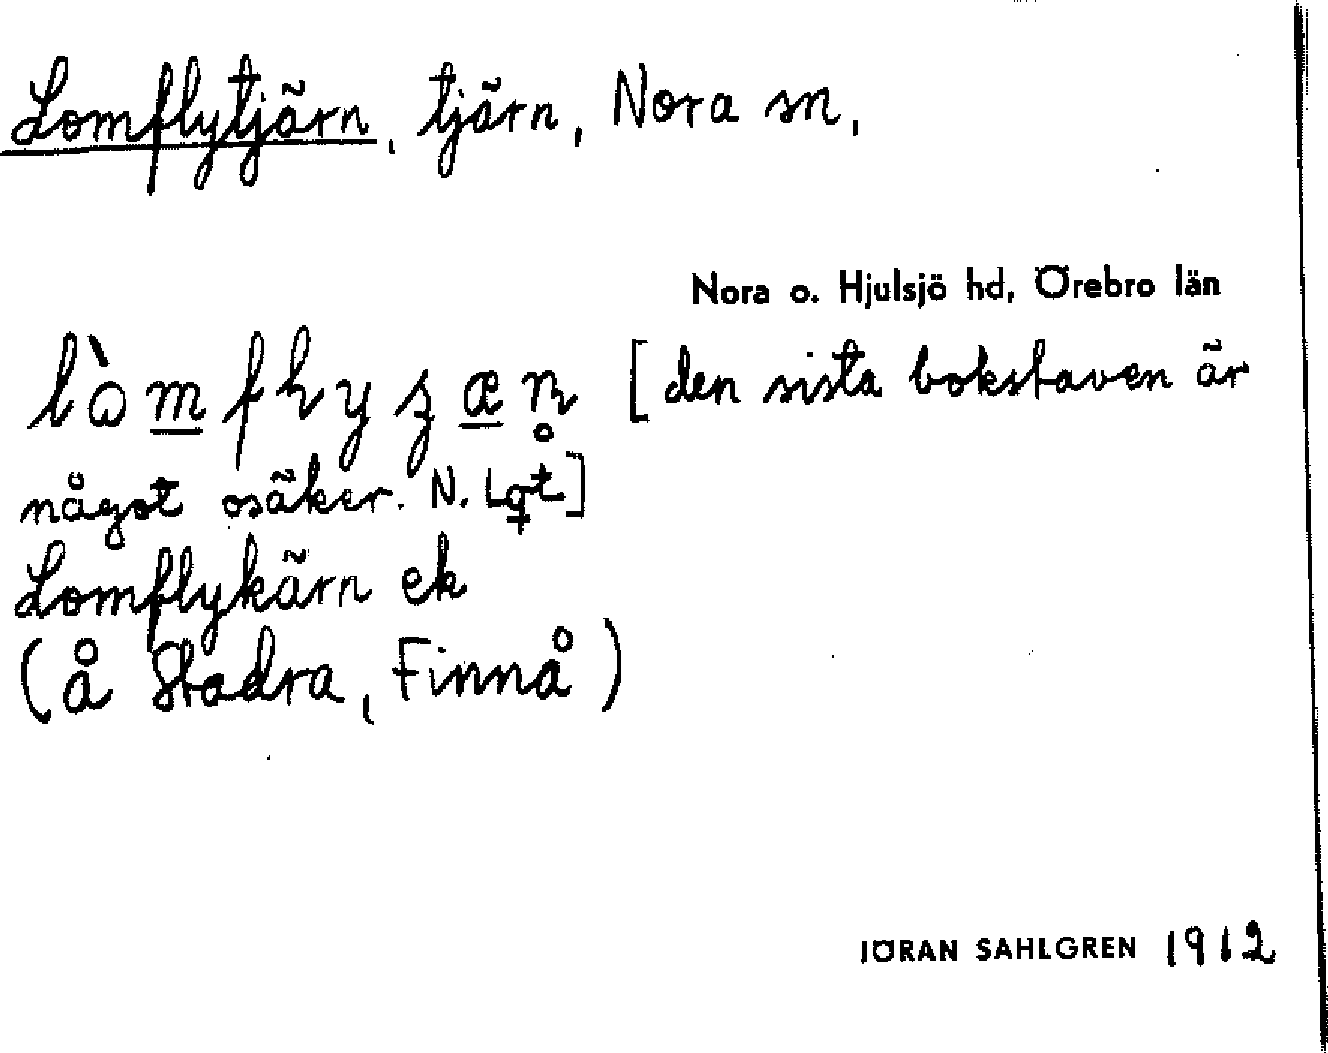 Lomflytjärn, tjärn, Nora sn,
Nora o. Hjulsjö hd, Örebro län
[den sista bokstaven är
något osäker. N. Lgt]
Lomflykärn ek
(å Stadra, Finnå)
JÖRAN SAHLGREN 1912